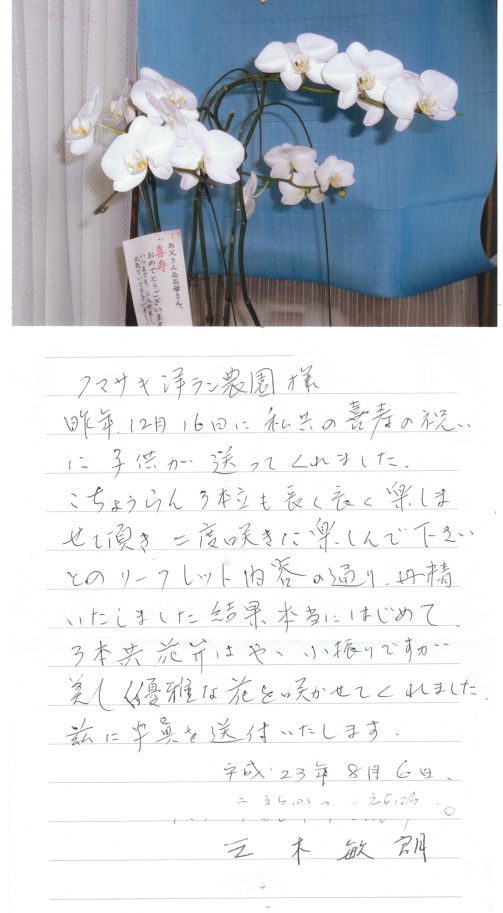 お父さん&お母さん、
喜寿
おめでとうございます
クマサキ洋ラン農園様
昨年.12月16日に私共の喜寿の祝い
に子供が送ってくれました.
こちょうらん3本立も長く長く楽しま
せて頂き二度咲きに楽しんで下さい
とのリーフレット内容の通り.丹精
いたしました結果本当にはじめて
3本共花弁はやゝ小振りですが
美しく優雅な花を咲かせてくれました.
茲に写真を送付いたします.
平成.23年8月6日.
三木敏朗